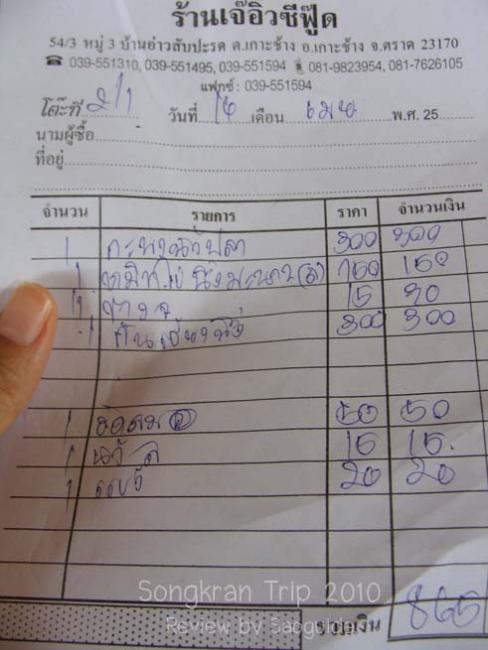 ร้านเจ๊อิวซีฟู๊ด
54/3 หมู่ 3 บ้านอ่าวสับปะรด ต.เกาะช้าง อ.เกาะช้าง จ.ตราด 23170
☎ 039-551310, 039-551495, 039-551594 081-9823954, 081-7626105
แฟกซ์ : 039-551594
โต๊ะที่ 2/1 วันที่ 16 เดือน เมษ พ.ศ. 25
นามผู้ซื้อ
ที่อยู่
จำนวน รายการ ราคา จำนวนเงิน
1 กะพงน้ำปลา 300 300
1 หมึกไข่นึ่งมะนาว 150 150
15 30
1 300 300
1 50 50
1 15 15
1 20 20
รวมเงิน 865
Songkran Trip 2010
Review by Saogolder